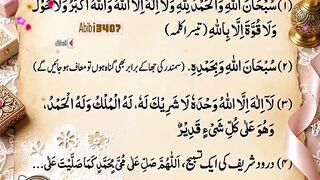 (۱) سُبْحَانَ اللهِ وَالْحَمْدُ لِلّٰهِ وَلَا اِلٰهَ اِلَّا اللهُ وَاللهُ اَكْبَرُ وَلَا حَوْلَ
وَلَا قُوَّةَ اِلَّا بِاللهِ (تیسرا کلمہ)
Abibi3407
(۲) سُبْحَانَ اللهِ وَبِحَمْدِهِ. (سمندر کی جھاگ کے برابر بھی گناہ ہوں تو معاف ہو جائیں گے)
(۳) لَا اِلٰهَ اِلَّا اللهُ وَحْدَهُ لَا شَرِيْكَ لَهُ، لَهُ الْمُلْكُ وَلَهُ الْحَمْدُ،
وَهُوَ عَلٰى كُلِّ شَيْءٍ قَدِيْرٌ
(۴) درود شریف کی ایک تسبیح، اَللّٰهُمَّ صَلِّ عَلٰى مُحَمَّدٍ كَمَا صَلَّيْتَ عَلٰى...